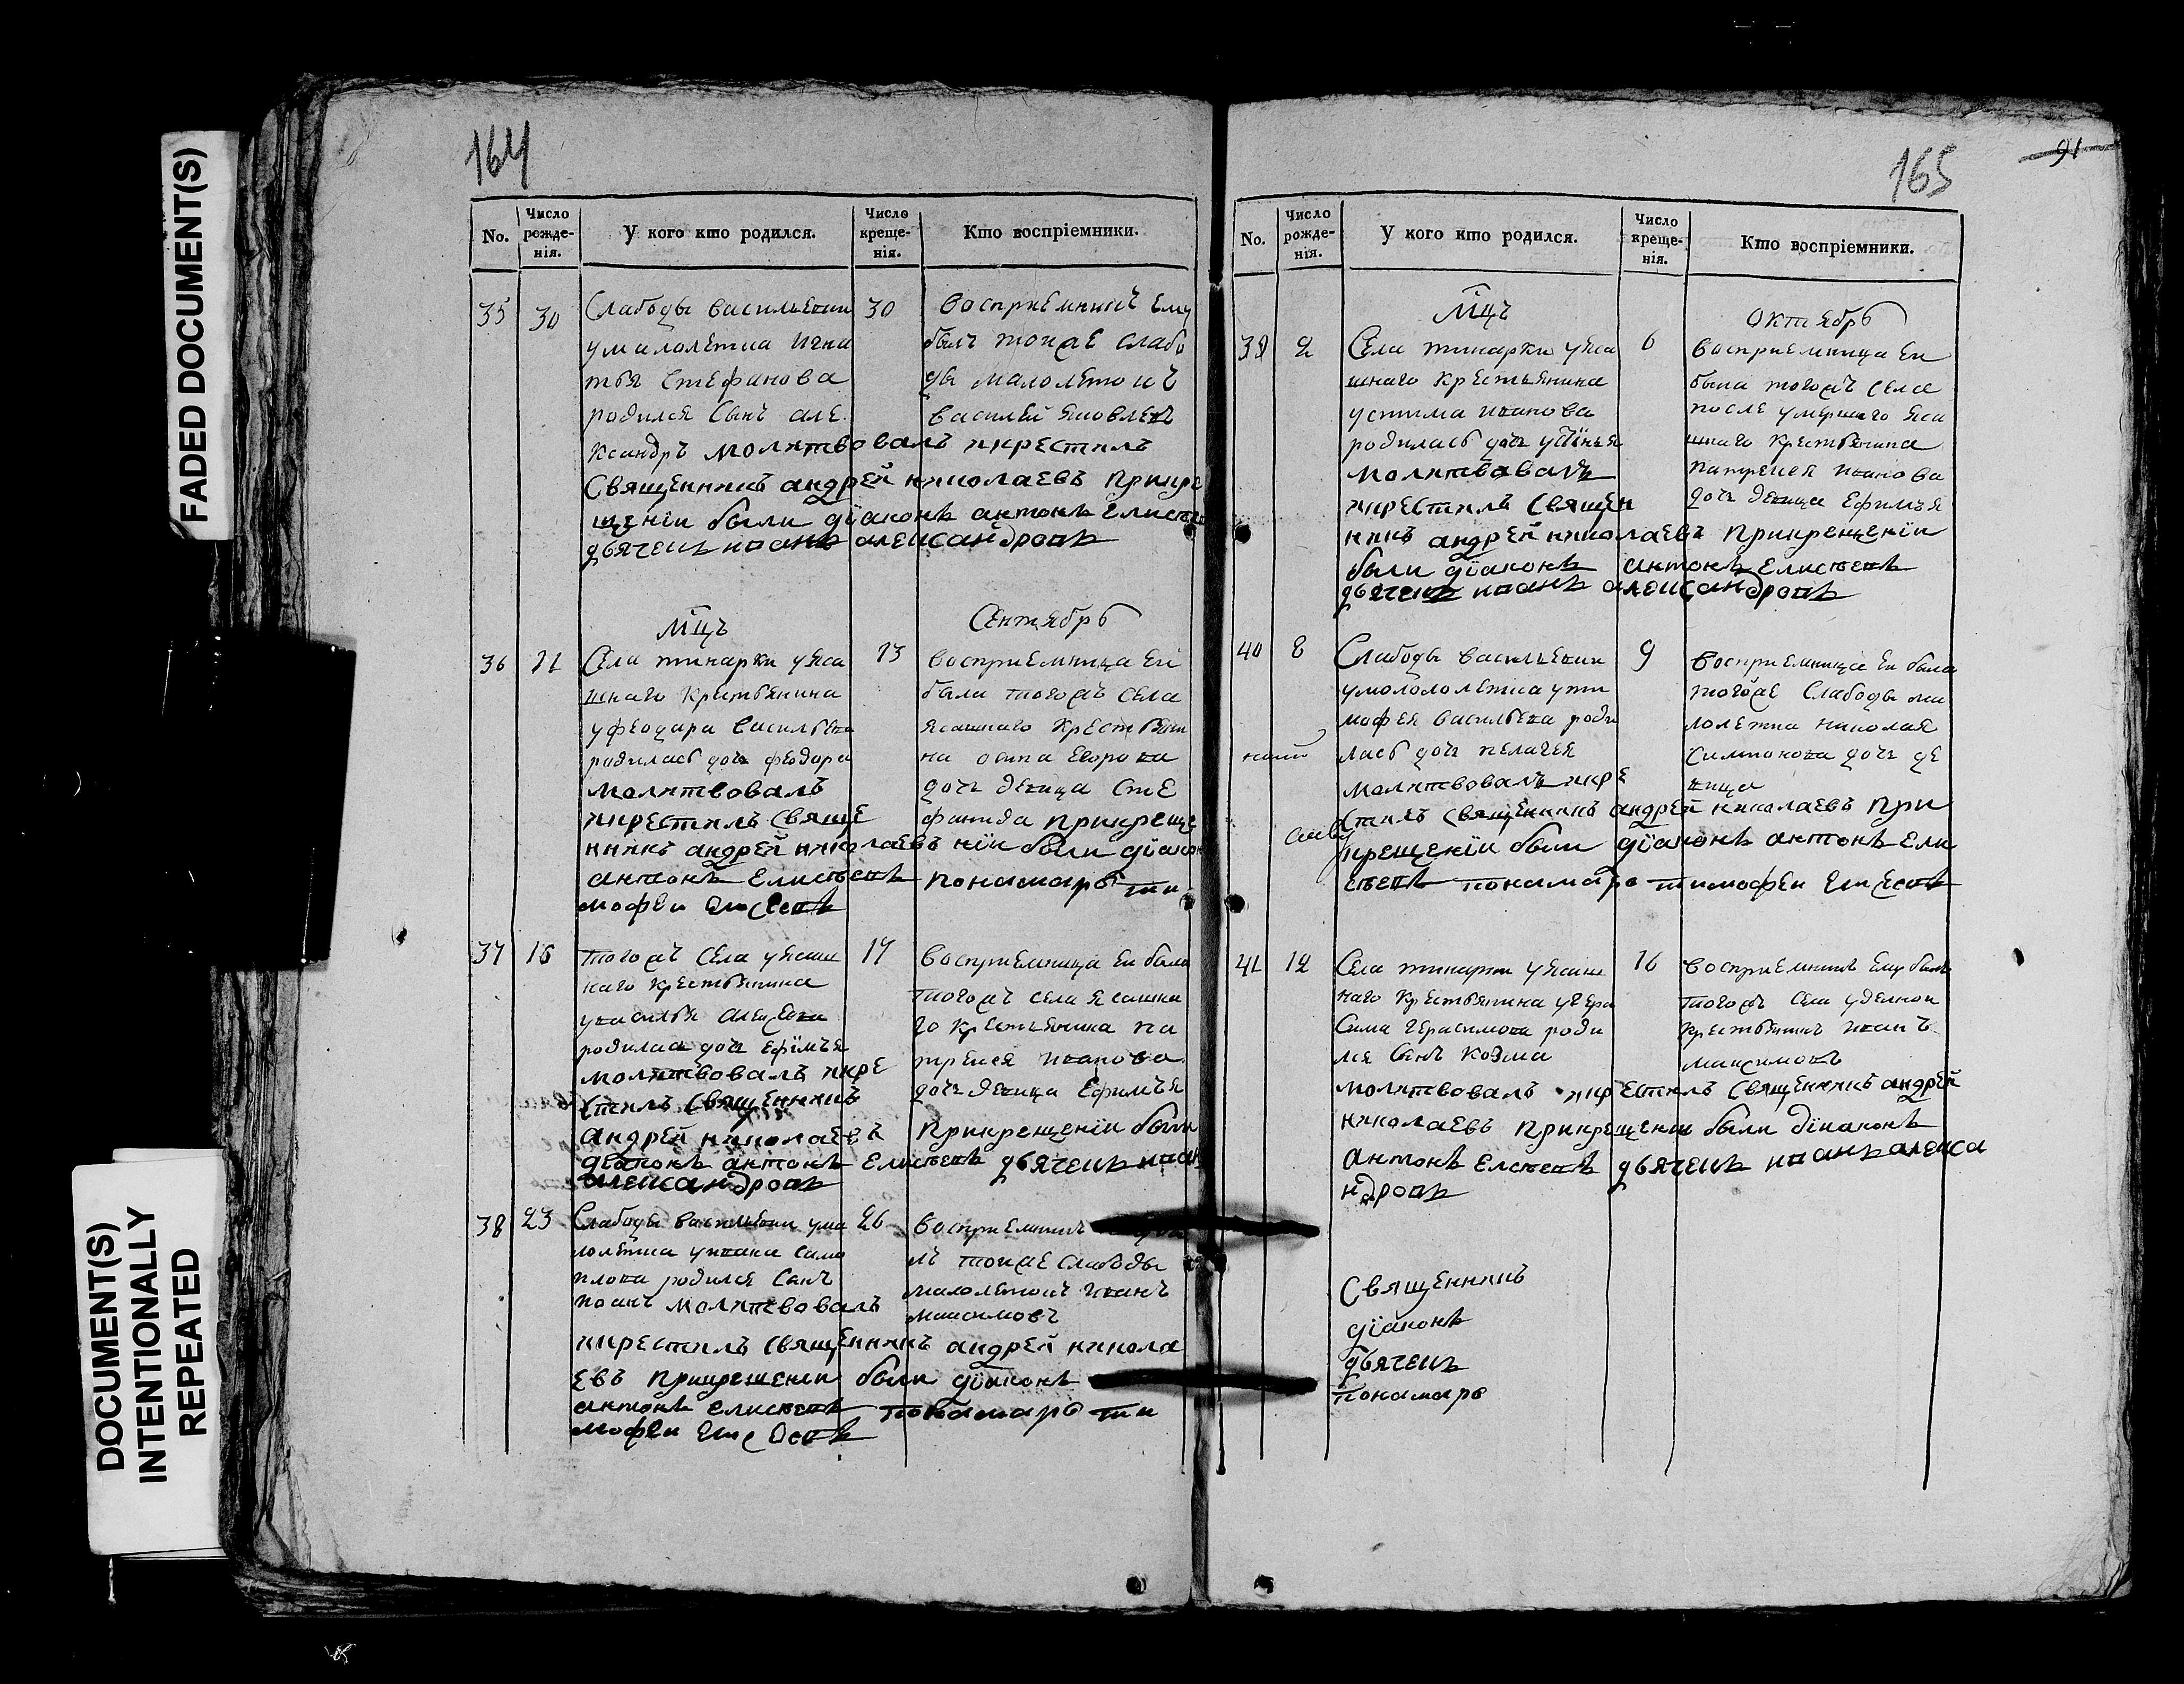 FADED DOCUMENT(S)
DOCUMENT(S)
INTENTIONALLY
REPEATED
164
No.
Число рожде-нія.
У кого кто родился.
Число креще-нія.
Кто воспріемники.
35 30
Слабоды василевки
у малолетка игна
тья Стефанова
родился Сынъ але
ксандръ молитвовалъ икрестилъ
Священникъ андрей николаевъ прикре
щеніи были діаконъ антонъ Елисеевъ
дьячекъ иванъ александровъ
30
восприемникъ ему
былъ тояже слабо
ды малолетокъ
василей яковлевъ
Мцъ
Сентябрь
36 11
Села тинарки уяса
шнаго Крестьянина
уфеодора васильева
родилась дочь феодора
молитвовалъ
икрестилъ Свяще
нникъ андрей николаевъ
антонъ Елисеевъ
мофеи
13
восприемница Ей
была тогожъ села
ясашнаго Крестьяни
на Егорова
дочь девица Сте
фанида прикреще
ніи были діаконъ
понамарь ти
37 15
тогожъ Села уясаш
наго крестьянина
увасилья алексеева
родилась дочь ефимъя
молитвовалъ икре
стилъ Священникъ
андрей николаевъ
діаконъ антонъ Елисеевъ дьячекъ иван
александровъ
17
восприемница Ей была
тогожъ села ясашна
го крестьянина па
иванова
дочь девица Ефимъя
Прикрещеніи были
38 23
Слабоды василевки ума
лолетка уивана
родился Сынъ
иванъ молитвовалъ
икрестилъ священникъ андрей никола
евъ прикрещеніи были діаконъ
антонъ елисеевъ понамарь ти
мофеи
26
восприемникъ
лъ тояже слабоды
малолетокъ иванъ
максимовъ
165
91
No.
Число рожде-нія.
У кого кто родился.
Число креще-нія.
Кто воспріемники.
Мцъ
Октябрь
39 2
Села тинарки уяса
шнаго Крестьянина
устима иванова
родилась дочь
молитвовалъ
икрестилъ Священ
никъ андрей николаевъ прикрещеніи
были діаконъ антонъ Елисеевъ
дьячекъ иванъ александровъ
6
восприемница Ей
была тогожъ села
после умершаго яса
шнаго крестьянина
иванова
дочь девица Ефимъя
40 8
Слабоды василевки
умололетка ути
мофея васильева роди
лась дочь пелагея
молитвовалъ икре
стилъ священникъ андрей николаевъ При
крещеніи были діаконъ антонъ Ели
сеевъ понамарь тимофеи
9
восприемница Ей была
тояже Слабоды ма
лолетка николая
дочь де
вица
41 12
Села тинарки уясаш
наго Крестьянина угера
сима герасимова роди
лся Сынъ козма
молитвовалъ икрестилъ священникъ андрей
николаевъ прикрещеніи были діаконъ
антонъ Елисеевъ дьячекъ иванъ алекса
ндровъ
16
восприемникъ Ему былъ
тогожъ Села уделной
крестьянинъ иванъ
максимовъ
Священникъ
діаконъ
дьячекъ
понамарь